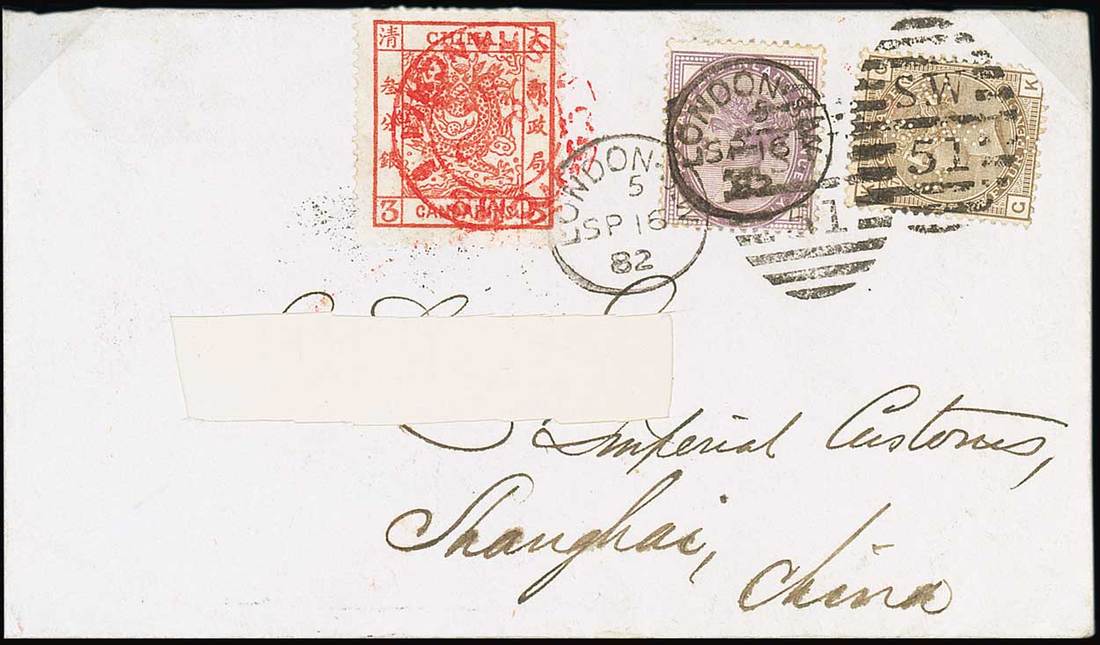 CHINA
大清郵政局
叁分銀
3 CANDARINS
LONDON
5
SP 16
82
LONDON
5
SP 16
82
SW
51
Imperial Customs,
Shanghai,
China